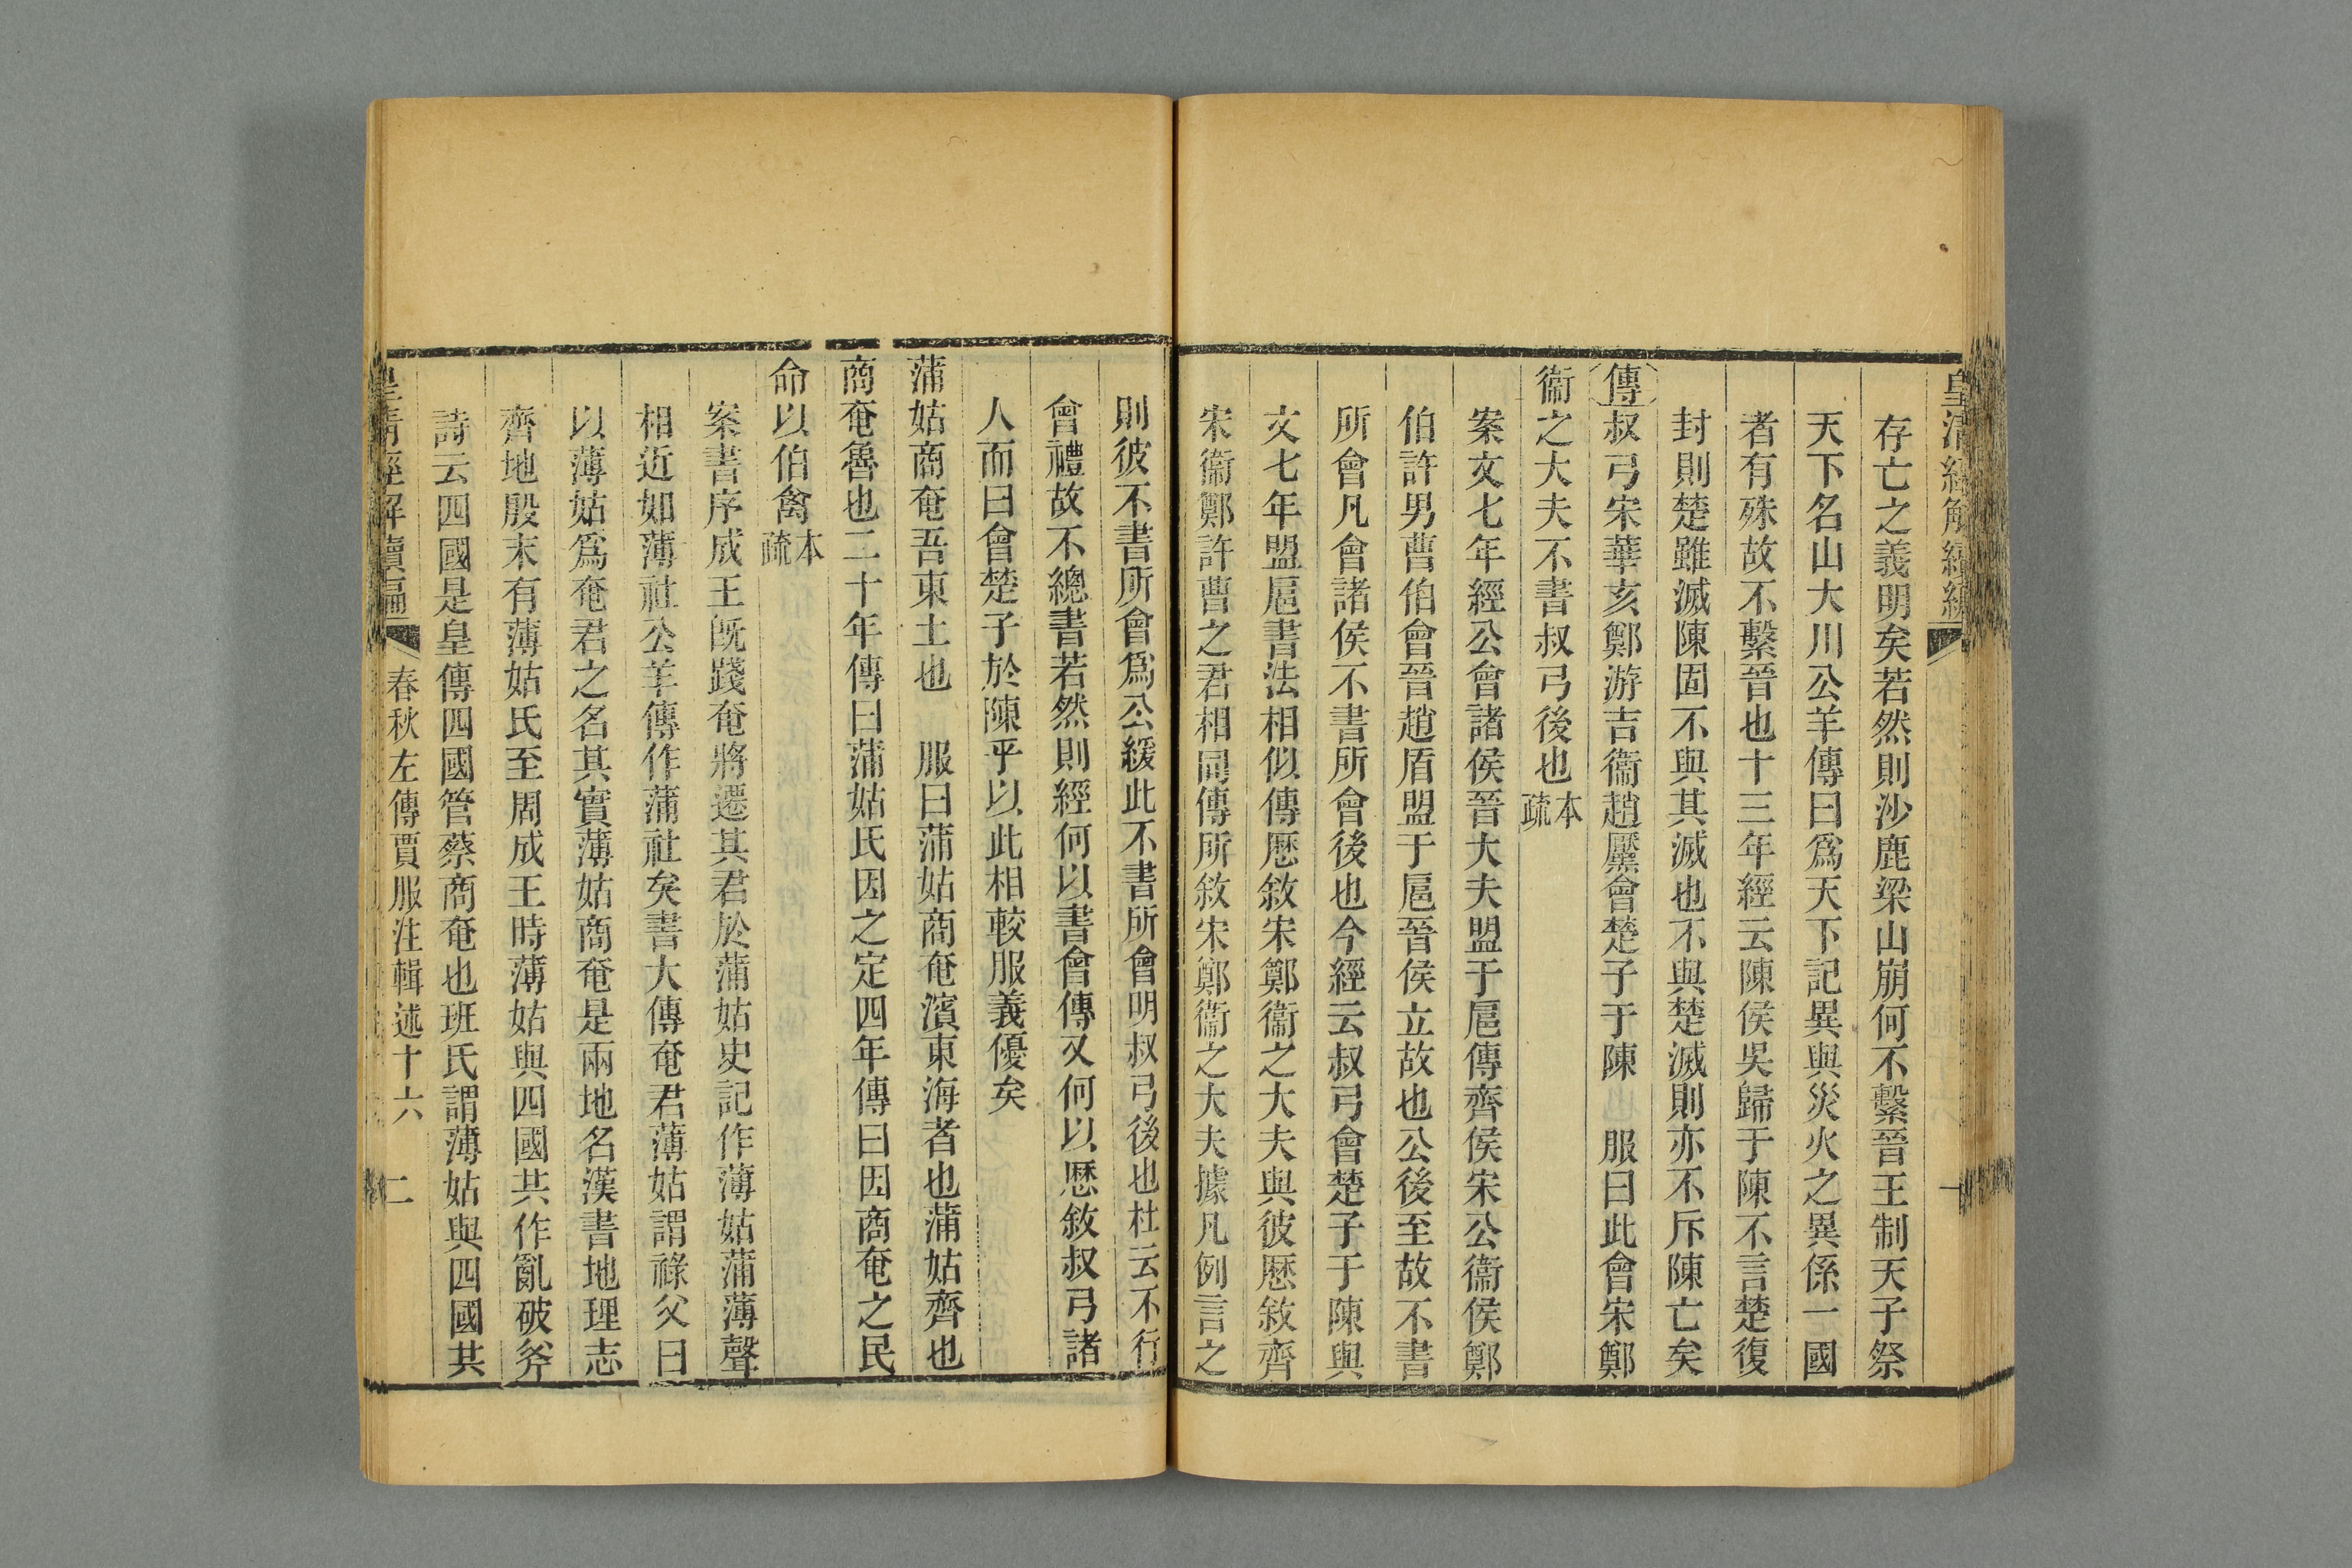 皇清經解續編
存亡之義明矣若然則沙鹿梁山崩何不繫晉王制天子祭
天下名山大川公羊傳曰爲天下記異與災火之異係一國
者有殊故不繫晉也十三年經云陳侯吳歸于陳不言楚復
封則楚雖滅陳固不與其滅也不與楚滅則亦不斥陳亡矣
傳叔弓宋華亥鄭游吉衞趙黶會楚子于陳 服曰此會宋鄭
衞之大夫不書叔弓後也本疏
案文七年經公會諸侯晉大夫盟于扈傳齊侯宋公衞侯鄭
伯許男曹伯會晉趙盾盟于扈晉侯立故也公後至故不書
所會凡會諸侯不書所會後也今經云叔弓會楚子于陳與
文七年盟扈書法相似傳歷敘宋鄭衞之大夫與彼歷敘齊
宋衞鄭許曹之君相同傳所敘宋鄭衞之大夫據凡例言之
則彼不書所會爲公緩此不書所會明叔弓後也杜云不行
會禮故不總書若然則經何以書會傳又何以歷敘叔弓諸
人而曰會楚子於陳乎以此相較服義優矣
蒲姑商奄吾東土也 服曰蒲姑商奄濱東海者也蒲姑齊也
商奄魯也二十年傳曰蒲姑氏因之定四年傳曰因商奄之民
命以伯禽本疏
案書序成王既踐奄將遷其君於蒲姑史記作薄姑蒲薄聲
相近如薄社公羊傳作蒲社矣書大傳奄君薄姑謂祿父曰
以薄姑爲奄君之名其實薄姑商奄是兩地名漢書地理志
齊地殷末有薄姑氏至周成王時薄姑與四國共作亂破斧
詩云四國是皇傳四國管蔡商奄也班氏謂薄姑與四國共
皇清經解續編 春秋左傳賈服注輯述十六 二